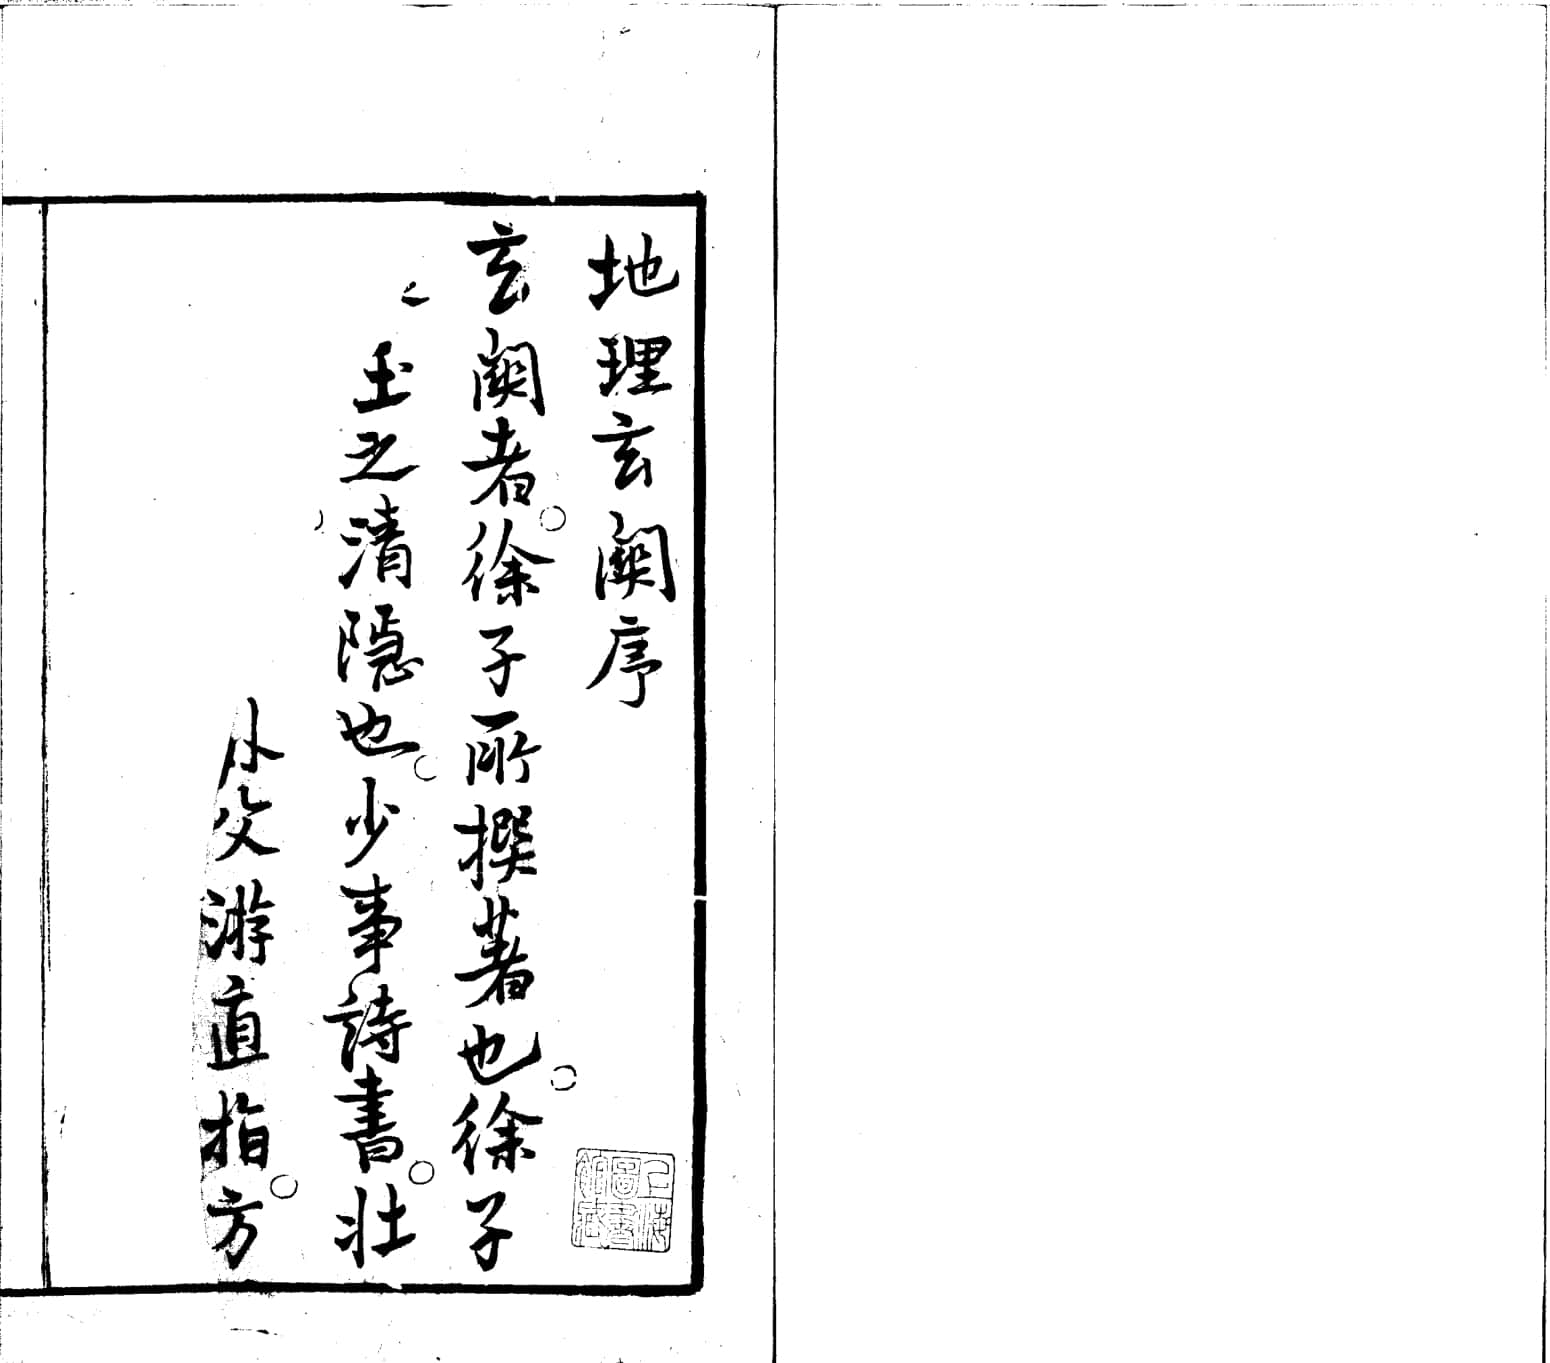 地理玄關序
玄關者徐子所撰著也徐子
玉之清隱也少事詩書壯
父游直指方
上海圖書館藏